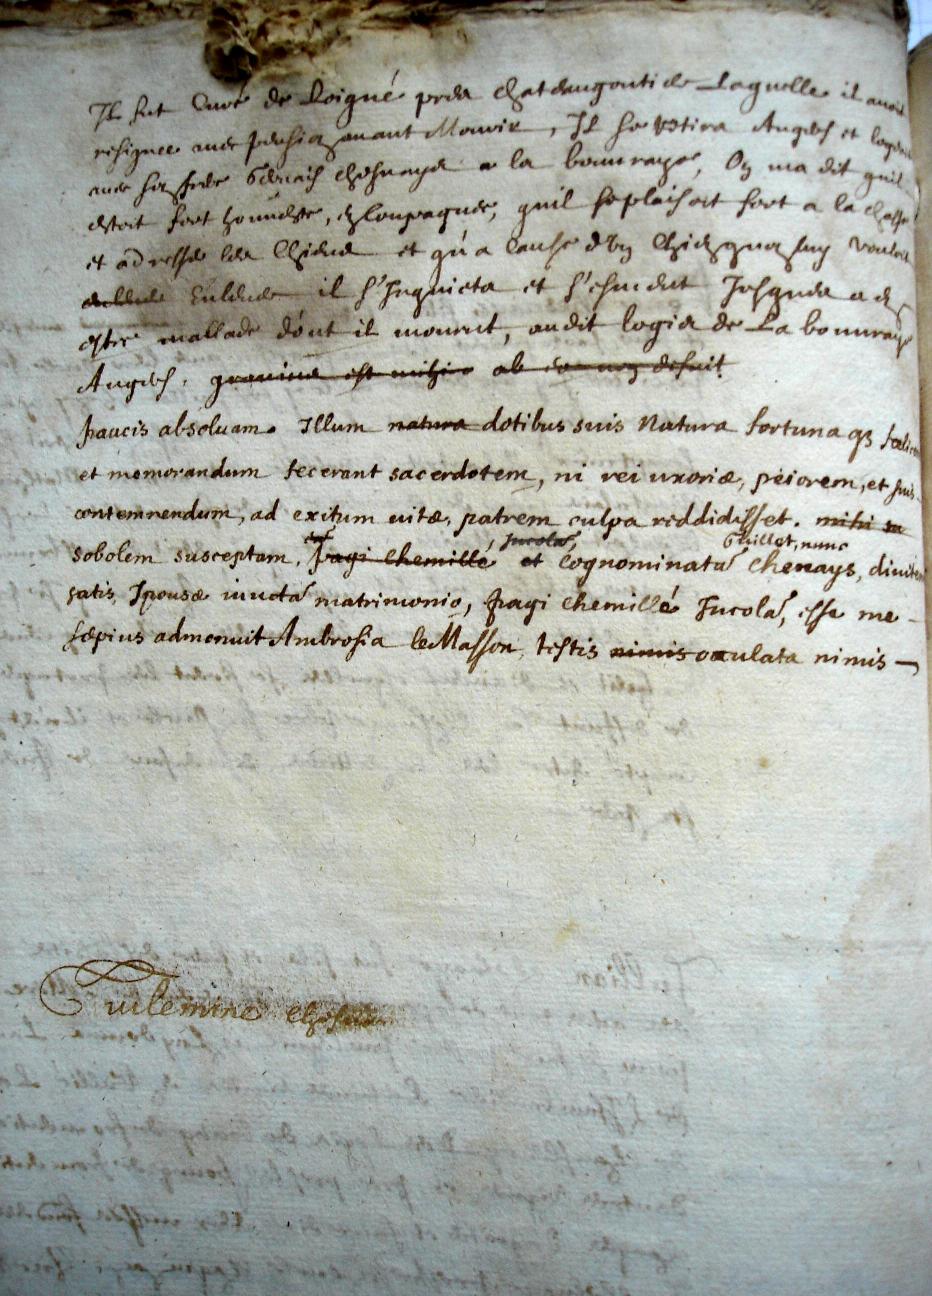 Il fut Curé de Loigné pres Chateaugontier de Laquelle il avoit
resignee avec pension avant Mourir, Il se retira Angers et logeoit
avec son frere Gervais chesnaye a la bouvraye, On ma dit quil
estoit fort honneste, quil se plaisoit fort a la chasse
et adresser les Chiens et qu'a cause d'un Chien quon luy vouloit
enlever il s'Inquieta et s'esmeut Jusques a en
estre mallade dont il mourut, audit logis de La bouvraye
Angers.
paucis absoluam. Illum natura dotibus suis Natura fortuna qз
et memorandum fecerant sacerdotem, ni rei uxoriæ, peiorem, et suis
contemnendum, ad exitum uitæ, patrem culpa reddidisset. mihi
sobolem susceptam, pagi Chemillé et Jncola, Cognominatā Guillet, nunc Chenays,
satis, Iponsæ iunctā matrimonio, pagi Chemillé Jncolā, esse me
sæpius admonuit Ambrosia le Masson, testis nimis oculata nimis
Guilemine